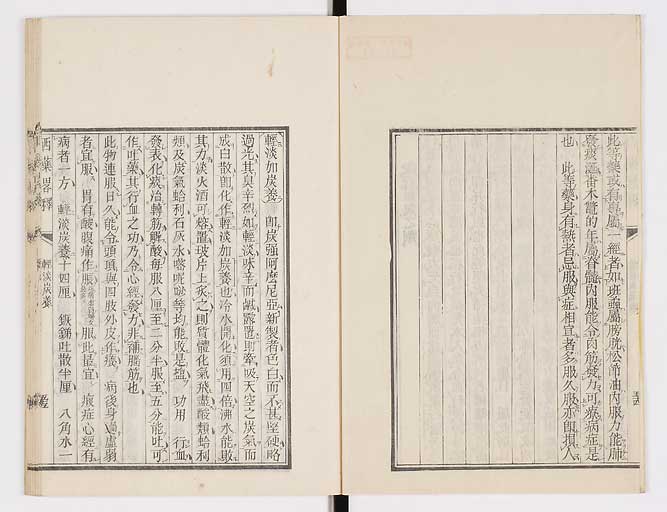 此等藥或有專屬一經者如班蝥屬膀胱松節油內服力能肺
發痰番木虌的年屬脊髓內服能令肉筋發力可療病症是
也 此等藥身有熱者忌服與症相宜者多服久服亦能損人
輕淡加炭養 卽炭强阿摩尼亞新製者色白而不甚堅硬略
過光其臭辛烈如輕淡味辛而鹹露置則牽吸天空之炭氣而
成白散卽化作輕淡加炭養也冷水開化須用四倍沸水能散
其力淡火酒可熔置玻片上炙之則質體化氣飛盡酸類蛤利
類及炭氣蛤利石灰水等均能敗是鹽 功用 行血
發表化痰治轉筋解酸每服八厘至二分半服至五分能吐可
作吐藥其行血之功乃令心經發力非補腦筋也
此物連服日久能令頭瓜與四肢外皮作癢 病後身虛弱
者宜服 胃有酸腹痛作脹服此最宜 瘕症心經有
病者一方 輕淡炭養十四厘 鏾吐散半厘 八角水一
西藥畧釋
輕淡炭養